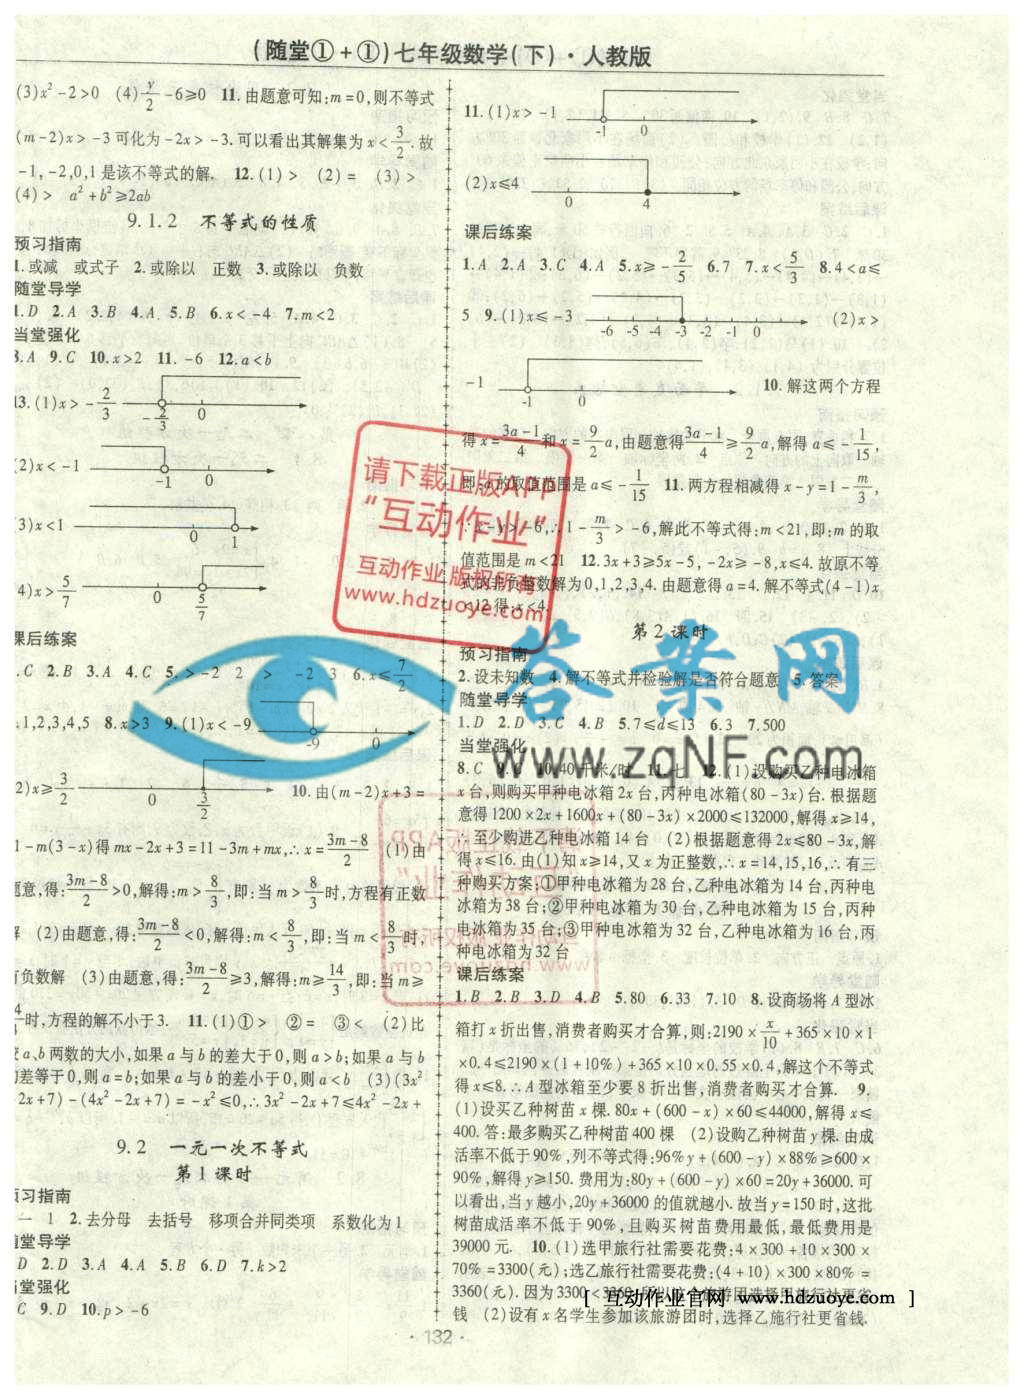 (随堂①+①)七年级数学(下)·人教版
(3)x²-2>0 (4)y/2-6≥0 11.由题意可知:m=0,则不等式
(m-2)x>-3可化为-2x>-3.可以看出其解集为x<3/2.故
-1,-2,0,1是该不等式的解. 12.(1)> (2)= (3)>
(4)> a²+b²≥2ab
9.1.2 不等式的性质
预习指南
1.或减 或式子 2.或除以 正数 3.或除以 负数
随堂导学
1.D 2.A 3.B 4.A 5.B 6.x<-4 7.m<2
当堂强化
8.A 9.C 10.x>2 11.-6 12.a<b
13.(1)x>-2/3
-2/3 0
(2)x<-1
-1 0
(3)x<1
0 1
(4)x>5/7
0 5/7
课后练案
1.C 2.B 3.A 4.C 5.>-2 2 > -2 3 6.x≤7/2
1,2,3,4,5 8.x>3 9.(1)x<-9
-9 0
(2)x≥3/2
0 3/2
10.由(m-2)x+3=
11-m(3-x)得mx-2x+3=11-3m+mx,∴x=(3m-8)/2 (1)由
题意,得:(3m-8)/2>0,解得:m>8/3,即:当m>8/3时,方程有正数
解 (2)由题意,得:(3m-8)/2<0,解得:m<8/3,即:当m<8/3时,
有负数解 (3)由题意,得:(3m-8)/2≥3,解得:m≥14/3,即:当m≥
14/3时,方程的解不小于3. 11.(1)①> ②= ③< (2)比
较a、b两数的大小,如果a与b的差大于0,则a>b;如果a与b
的差等于0,则a=b;如果a与b的差小于0,则a<b (3)(3x²
-2x+7)-(4x²-2x+7)=-x²≤0,∴3x²-2x+7≤4x²-2x+
9.2 一元一次不等式
第1课时
预习指南
一 1 2.去分母 去括号 移项合并同类项 系数化为1
随堂导学
D 2.D 3.A 4.A 5.B 6.D 7.k>2
当堂强化
C 9.D 10.p>-6
11.(1)x>-1
-1 0
(2)x≤4
0 4
课后练案
1.A 2.A 3.C 4.A 5.x≥-2/5 6.7 7.x<5/3 8.4<a≤
5 9.(1)x≤-3
-6 -5 -4 -3 -2 -1 0
(2)x>
-1
-1 0
10.解这两个方程
得x=(3a-1)/4和x=9/2a,由题意得(3a-1)/4≥9/2a,解得a≤-1/15,
即:a的取值范围是a≤-1/15 11.两方程相减得x-y=1-m/3,
∵x-y>-6,∴1-m/3>-6,解此不等式得:m<21,即:m的取
值范围是m<21 12.3x+3≥5x-5,-2x≥-8,x≤4.故原不等
式的非负整数解为0,1,2,3,4.由题意得a=4.解不等式(4-1)x
<12得:x<4.
第2课时
预习指南
2.设未知数 4.解不等式并检验解是否符合题意 5.答案
随堂导学
1.D 2.D 3.C 4.B 5.7≤d≤13 6.3 7.500
当堂强化
8.C 9.C 10.40千米/时 11.七 12.(1)设购买乙种电冰箱
x台,则购买甲种电冰箱2x台,丙种电冰箱(80-3x)台.根据题
意得1200×2x+1600x+(80-3x)×2000≤132000,解得x≥14,
∴至少购进乙种电冰箱14台 (2)根据题意得2x≤80-3x,解
得x≤16.由(1)知x≥14,又x为正整数,∴x=14,15,16,∴有三
种购买方案:①甲种电冰箱为28台,乙种电冰箱为14台,丙种电
冰箱为38台;②甲种电冰箱为30台,乙种电冰箱为15台,丙种
电冰箱为35台;③甲种电冰箱为32台,乙种电冰箱为16台,丙
种电冰箱为32台
课后练案
1.B 2.B 3.D 4.B 5.80 6.33 7.10 8.设商场将A型冰
箱打x折出售,消费者购买才合算,则:2190×x/10+365×10×1
×0.4≤2190×(1+10%)+365×10×0.55×0.4,解这个不等式
得x≤8.∴A型冰箱至少要8折出售,消费者购买才合算. 9.
(1)设买乙种树苗x棵.80x+(600-x)×60≤44000,解得x≤
400.答:最多购买乙种树苗400棵 (2)设购乙种树苗y棵.由成
活率不低于90%,列不等式得:96%y+(600-y)×88%≥600×
90%,解得y≥150.费用为:80y+(600-y)×60=20y+36000.可
以看出,当y越小,20y+36000的值就越小.故当y=150时,这批
树苗成活率不低于90%,且购买树苗费用最低,最低费用是
39000元. 10.(1)选甲旅行社需要花费:4×300+10×300×
70%=3300(元);选乙旅行社需要花费:(4+10)×300×80%=
3360(元).因为3300<3360,所以这个旅游团选择甲旅行社更省
钱 (2)设有x名学生参加该旅游团时,选择乙旅行社更省钱.
·132·
请下载正版APP
“互动作业”
互动作业 版权所有
www.hdzuoye.com
答案网
www.zqNF.com
[ 互动作业官网 www.hdzuoye.com ]